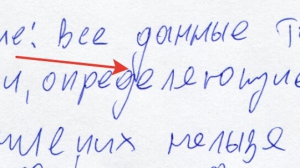 ие: все данные т
и, определяющие
мле ких нельзя